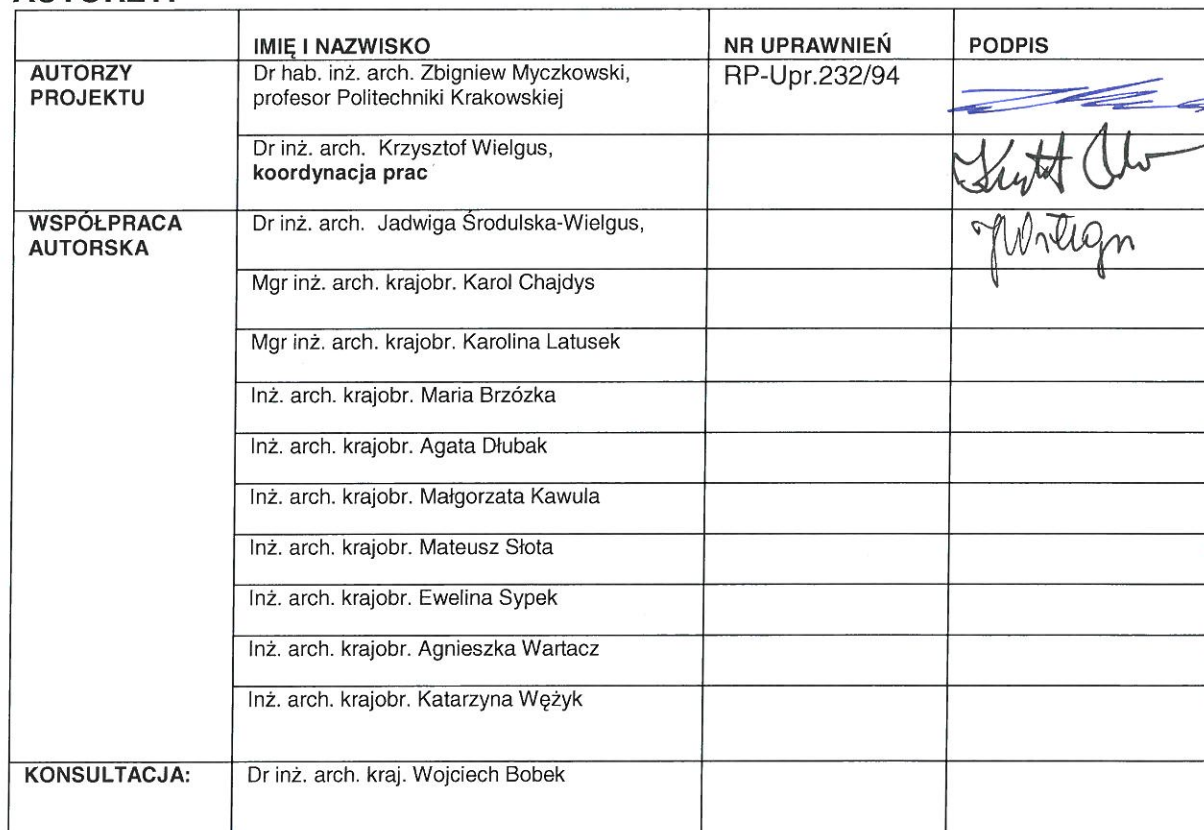 IMIĘ I NAZWISKO NR UPRAWNIEŃ PODPIS
AUTORZY Dr hab. inż. arch. Zbigniew Myczkowski, RP-Upr.232/94
PROJEKTU profesor Politechniki Krakowskiej
Dr inż. arch. Krzysztof Wielgus,
koordynacja prac
WSPÓŁPRACA Dr inż. arch. Jadwiga Środulska-Wielgus,
AUTORSKA
Mgr inż. arch. krajobr. Karol Chajdys
Mgr inż. arch. krajobr. Karolina Latusek
Inż. arch. krajobr. Maria Brzózka
Inż. arch. krajobr. Agata Dłubak
Inż. arch. krajobr. Małgorzata Kawula
Inż. arch. krajobr. Mateusz Słota
Inż. arch. krajobr. Ewelina Sypek
Inż. arch. krajobr. Agnieszka Wartacz
Inż. arch. krajobr. Katarzyna Wężyk
KONSULTACJA: Dr inż. arch. kraj. Wojciech Bobek